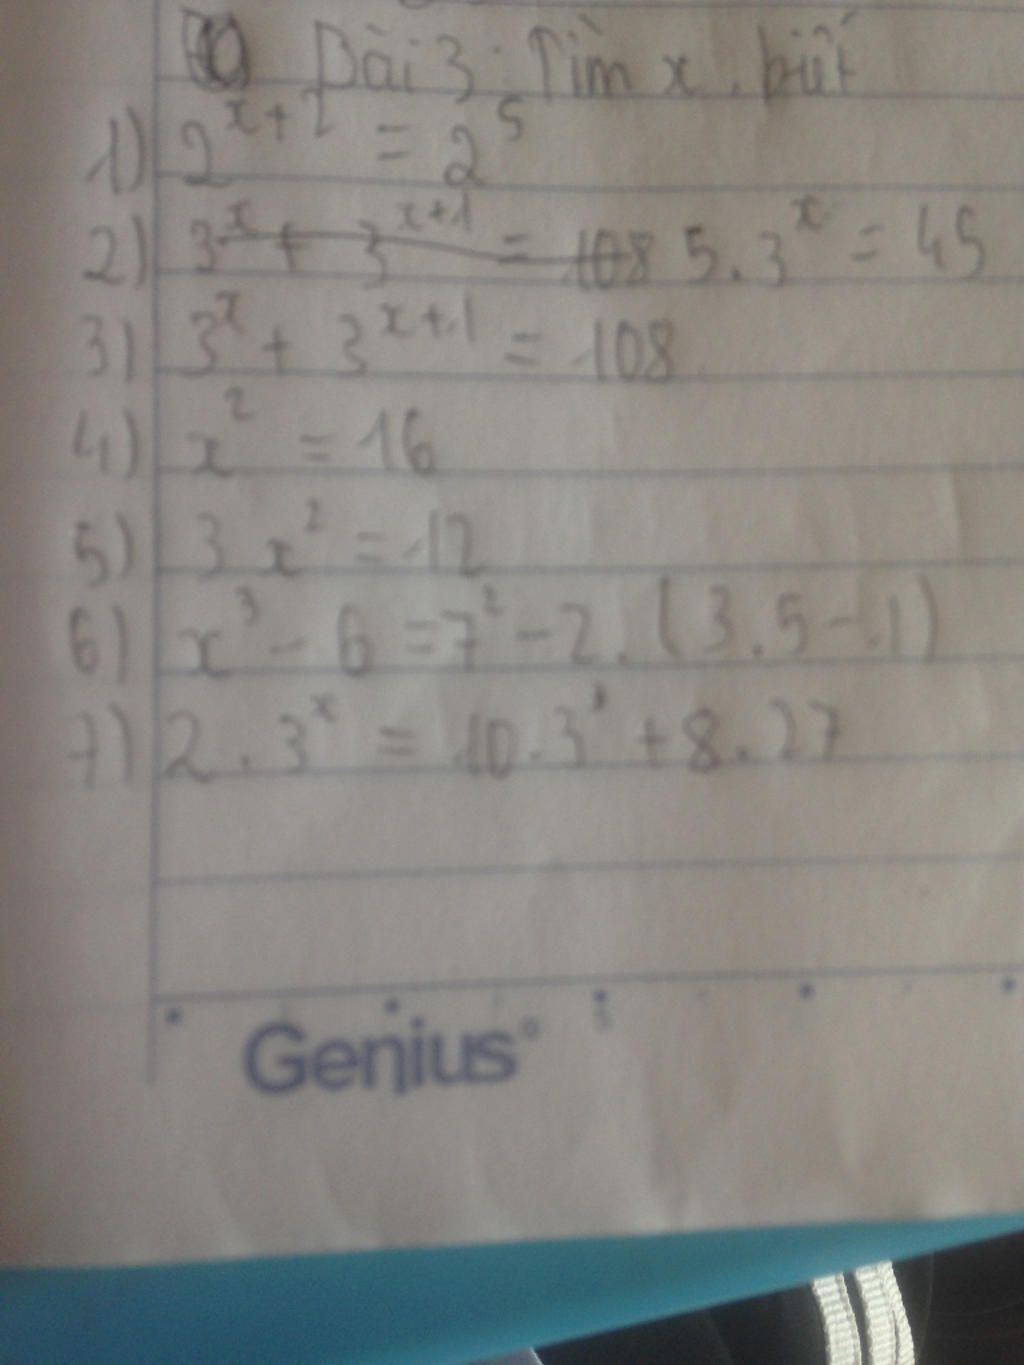 Bài 3: Tìm x, biết
1) 2^{x+2} = 2^5
2) ~~3^x + 3^{x+1} = 108~~ 5.3^x = 45
3) 3^x + 3^{x+1} = 108
4) x^2 = 16
5) 3x^2 = 12
6) x^3 - 6 = 7^2 - 2.(3.5-1)
7) 2.3^x = 10.3 + 8.27
Genius